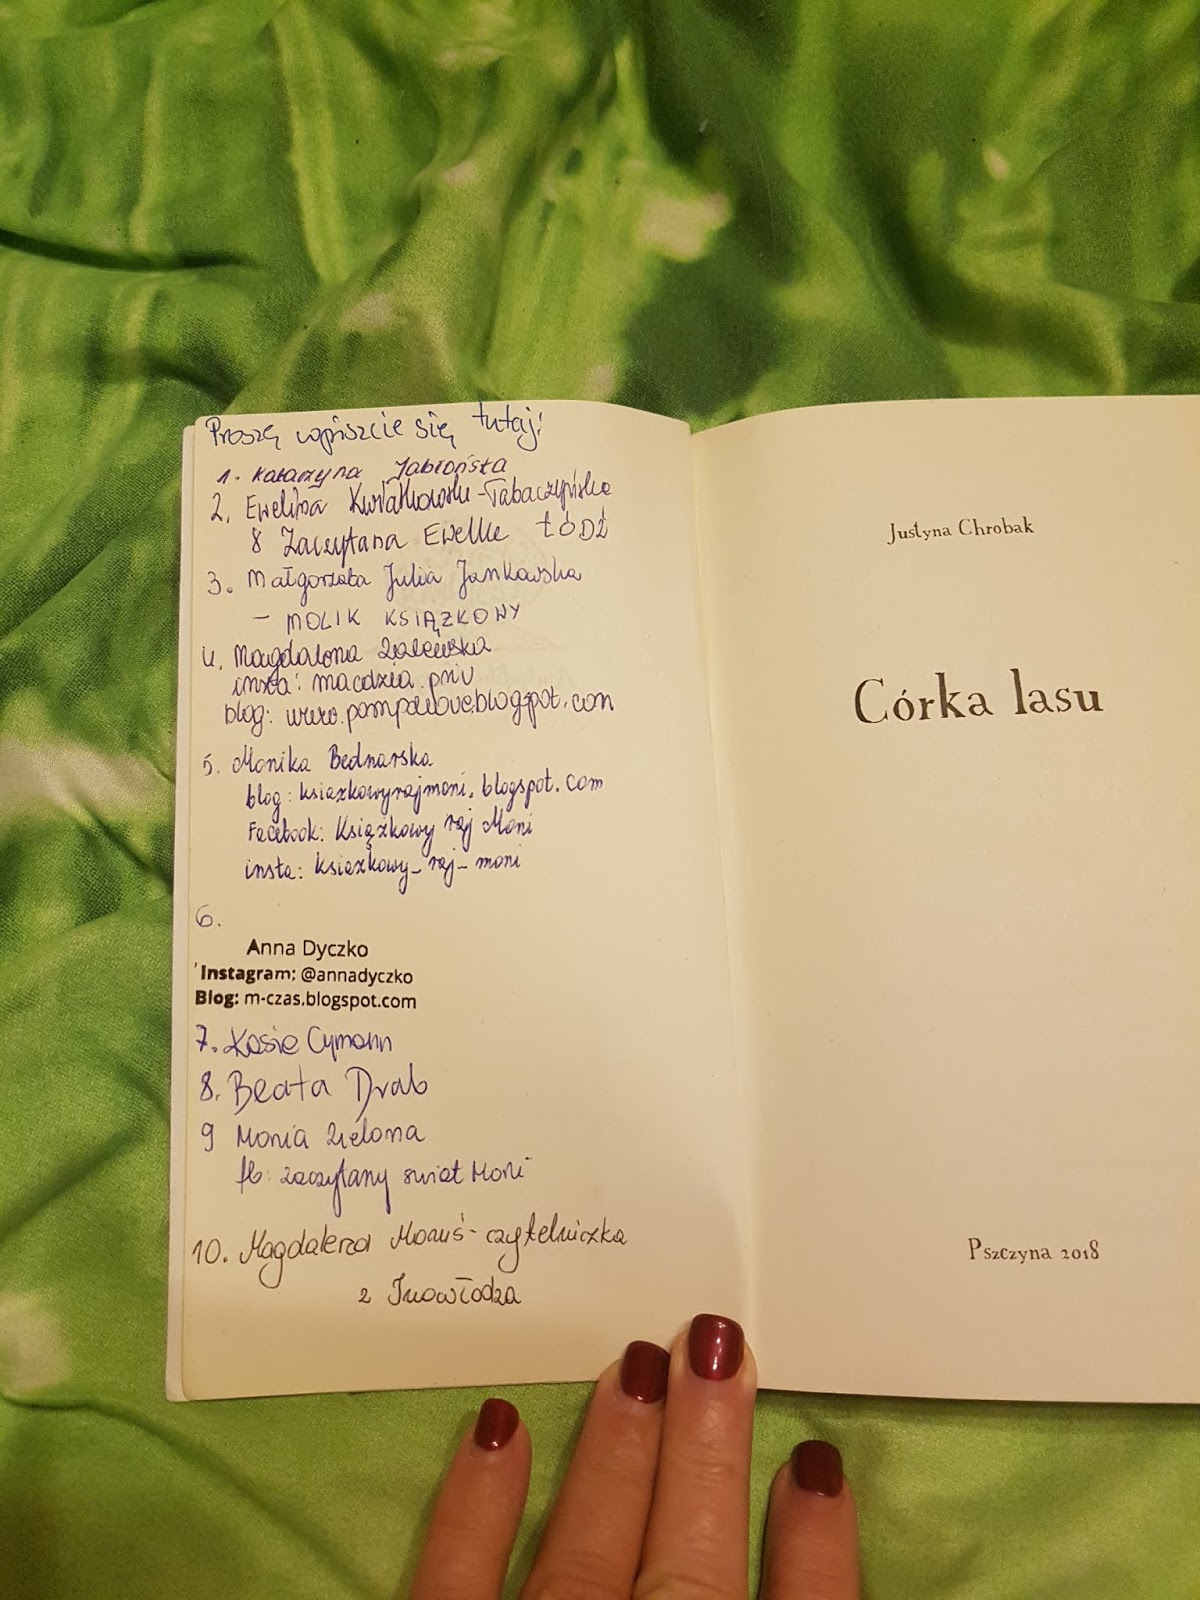 Proszę wpiszcie się tutaj!
1. Katarzyna Jabłońska
2. Ewelina Kwiatkowska-Tabaczyńska
8 Zaczytana Ewelka ŁÓDŹ
3. Małgorzata Julia Jankowska
- MOLIK KSIĄŻKOWY
4. Magdalena Zalewska
insta: macdzia.priv
blog: www.pompdelove.blogspot.com
5. Monika Bednarska
blog: ksiazkowyrajmoni.blogspot.com
Facebook: Książkowy raj Moni
insta: ksiazkowy_raj_moni
6.
Anna Dyczko
Instagram: @annadyczko
Blog: m-czas.blogspot.com
7. Kasia Cymann
8. Beata Drab
9 Monia Zielona
fb: zaczytany swiat Moni
10. Magdalena Moruś-czytelniczka
z Inowłodza
Justyna Chrobak
Córka lasu
Pszczyna 2018